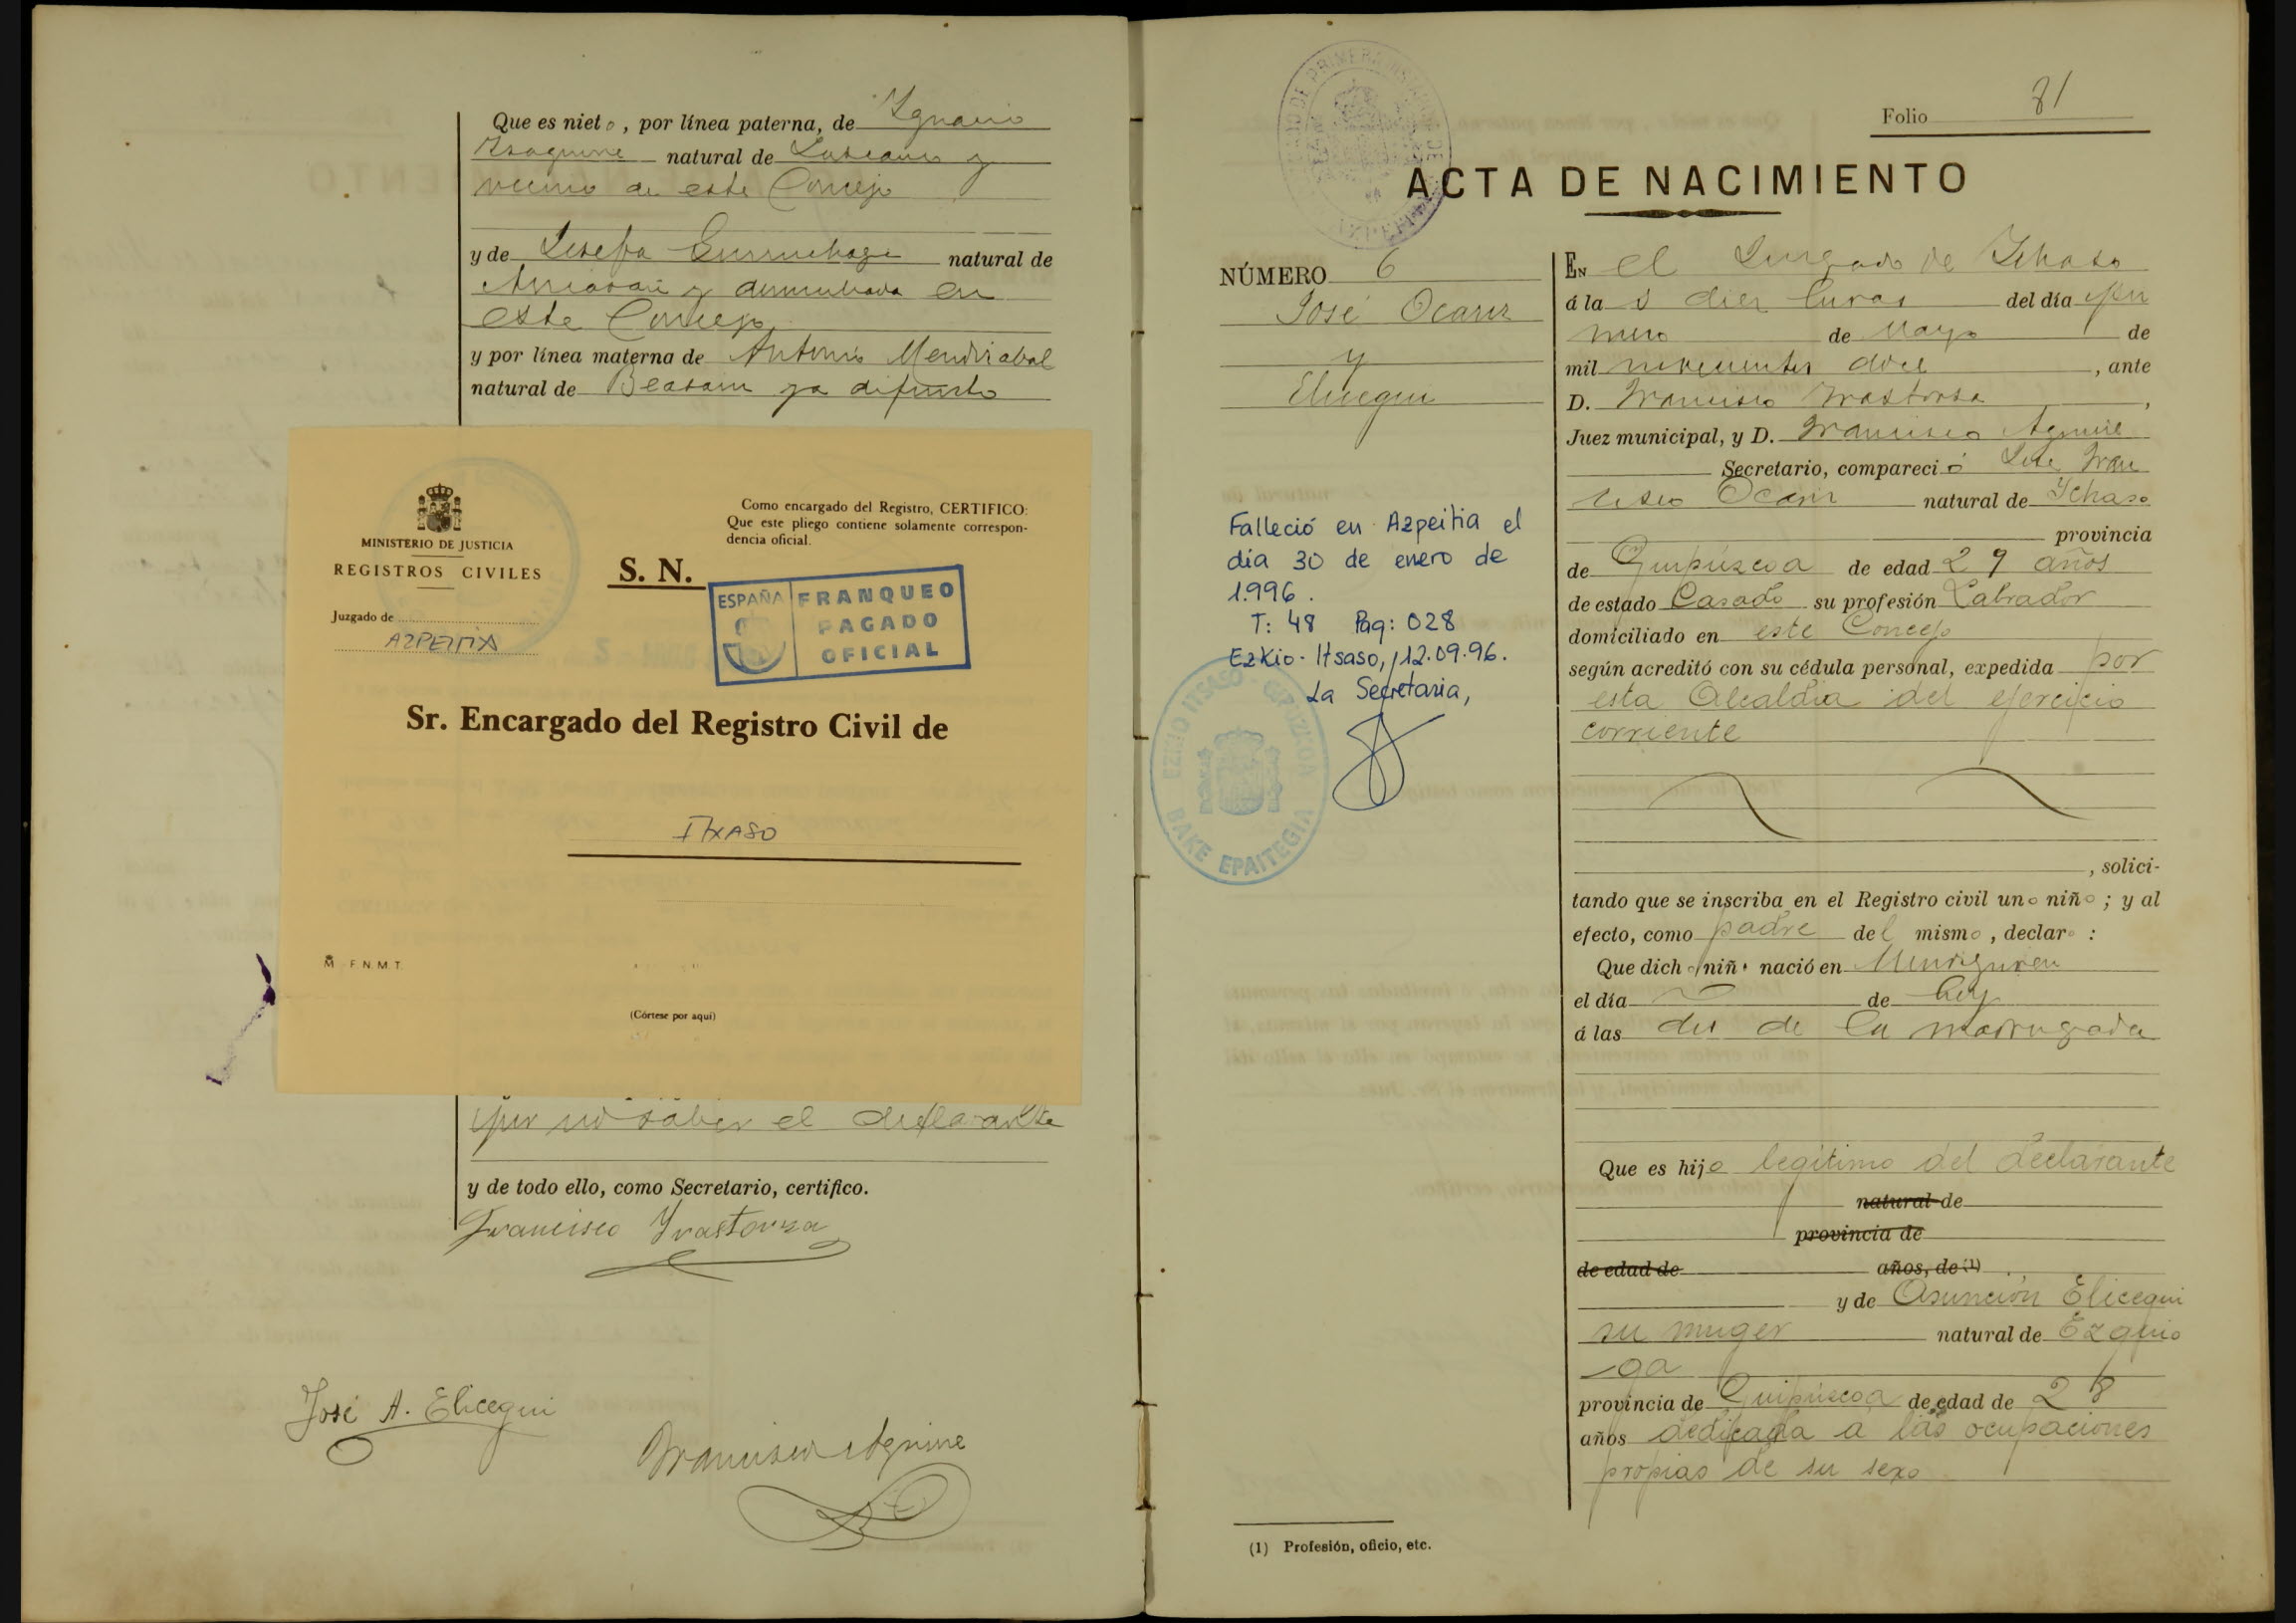 Que es nieto, por línea paterna, de Ygnacio
Ysaguirre natural de Lazcano y
vecino de este Concejo
y de Josefa natural de
y domiciliada en
este Concejo
y por línea materna de Antonio Mendizabal
natural de Beasain ya difunto
MINISTERIO DE JUSTICIA
REGISTROS CIVILES
Juzgado de
AZPEITIA
S. N.
Como encargado del Registro, CERTIFICO:
Que este pliego contiene solamente correspon-
dencia oficial.
ESPAÑA FRANQUEO
PAGADO
OFICIAL
Sr. Encargado del Registro Civil de
ITXASO
F. N. M. T.
(Córtese por aquí)
por no saber el declarante
y de todo ello, como Secretario, certifico.
Francisco Yrastorza
José A. Elicegui
Francisco Aguirre
Folio 81
ACTA DE NACIMIENTO
NÚMERO 6
José Ocariz
y
Elicegui
Falleció en Azpeitia el
día 30 de enero de
1.996.
T: 48 Pag: 028
Ezkio-Itsaso, 12.09.96.
La Secretaria,
EZKIO ITSASO - GIPUZKOA
BAKE EPAITEGIA
En el Juzgado de Ichaso
á la s diez horas del día pri
mero de Mayo de
mil novecientos doce, ante
D. Francisco Yrastorza,
Juez municipal, y D. Francisco Aguirre
Secretario, compareció José Fran
cisco Ocariz natural de Ichaso
provincia
de Guipúzcoa de edad 29 años
de estado Casado su profesión Labrador
domiciliado en este Concejo
según acreditó con su cédula personal, expedida por
esta Alcaldia del ejercicio
corriente
, solici-
tando que se inscriba en el Registro civil uno niño; y al
efecto, como padre del mismo, declaro:
Que dicho niño nació en
el día de hoy
á las dos de la madrugada
Que es hijo legítimo del declarante
natural de
provincia de
de edad de años, de (1)
y de Asunción Elicegui
su muger natural de Ezquio
ga
provincia de Guipúzcoa de edad de 28
años dedicada a las ocupaciones
propias de su sexo
(1) Profesión, oficio, etc.